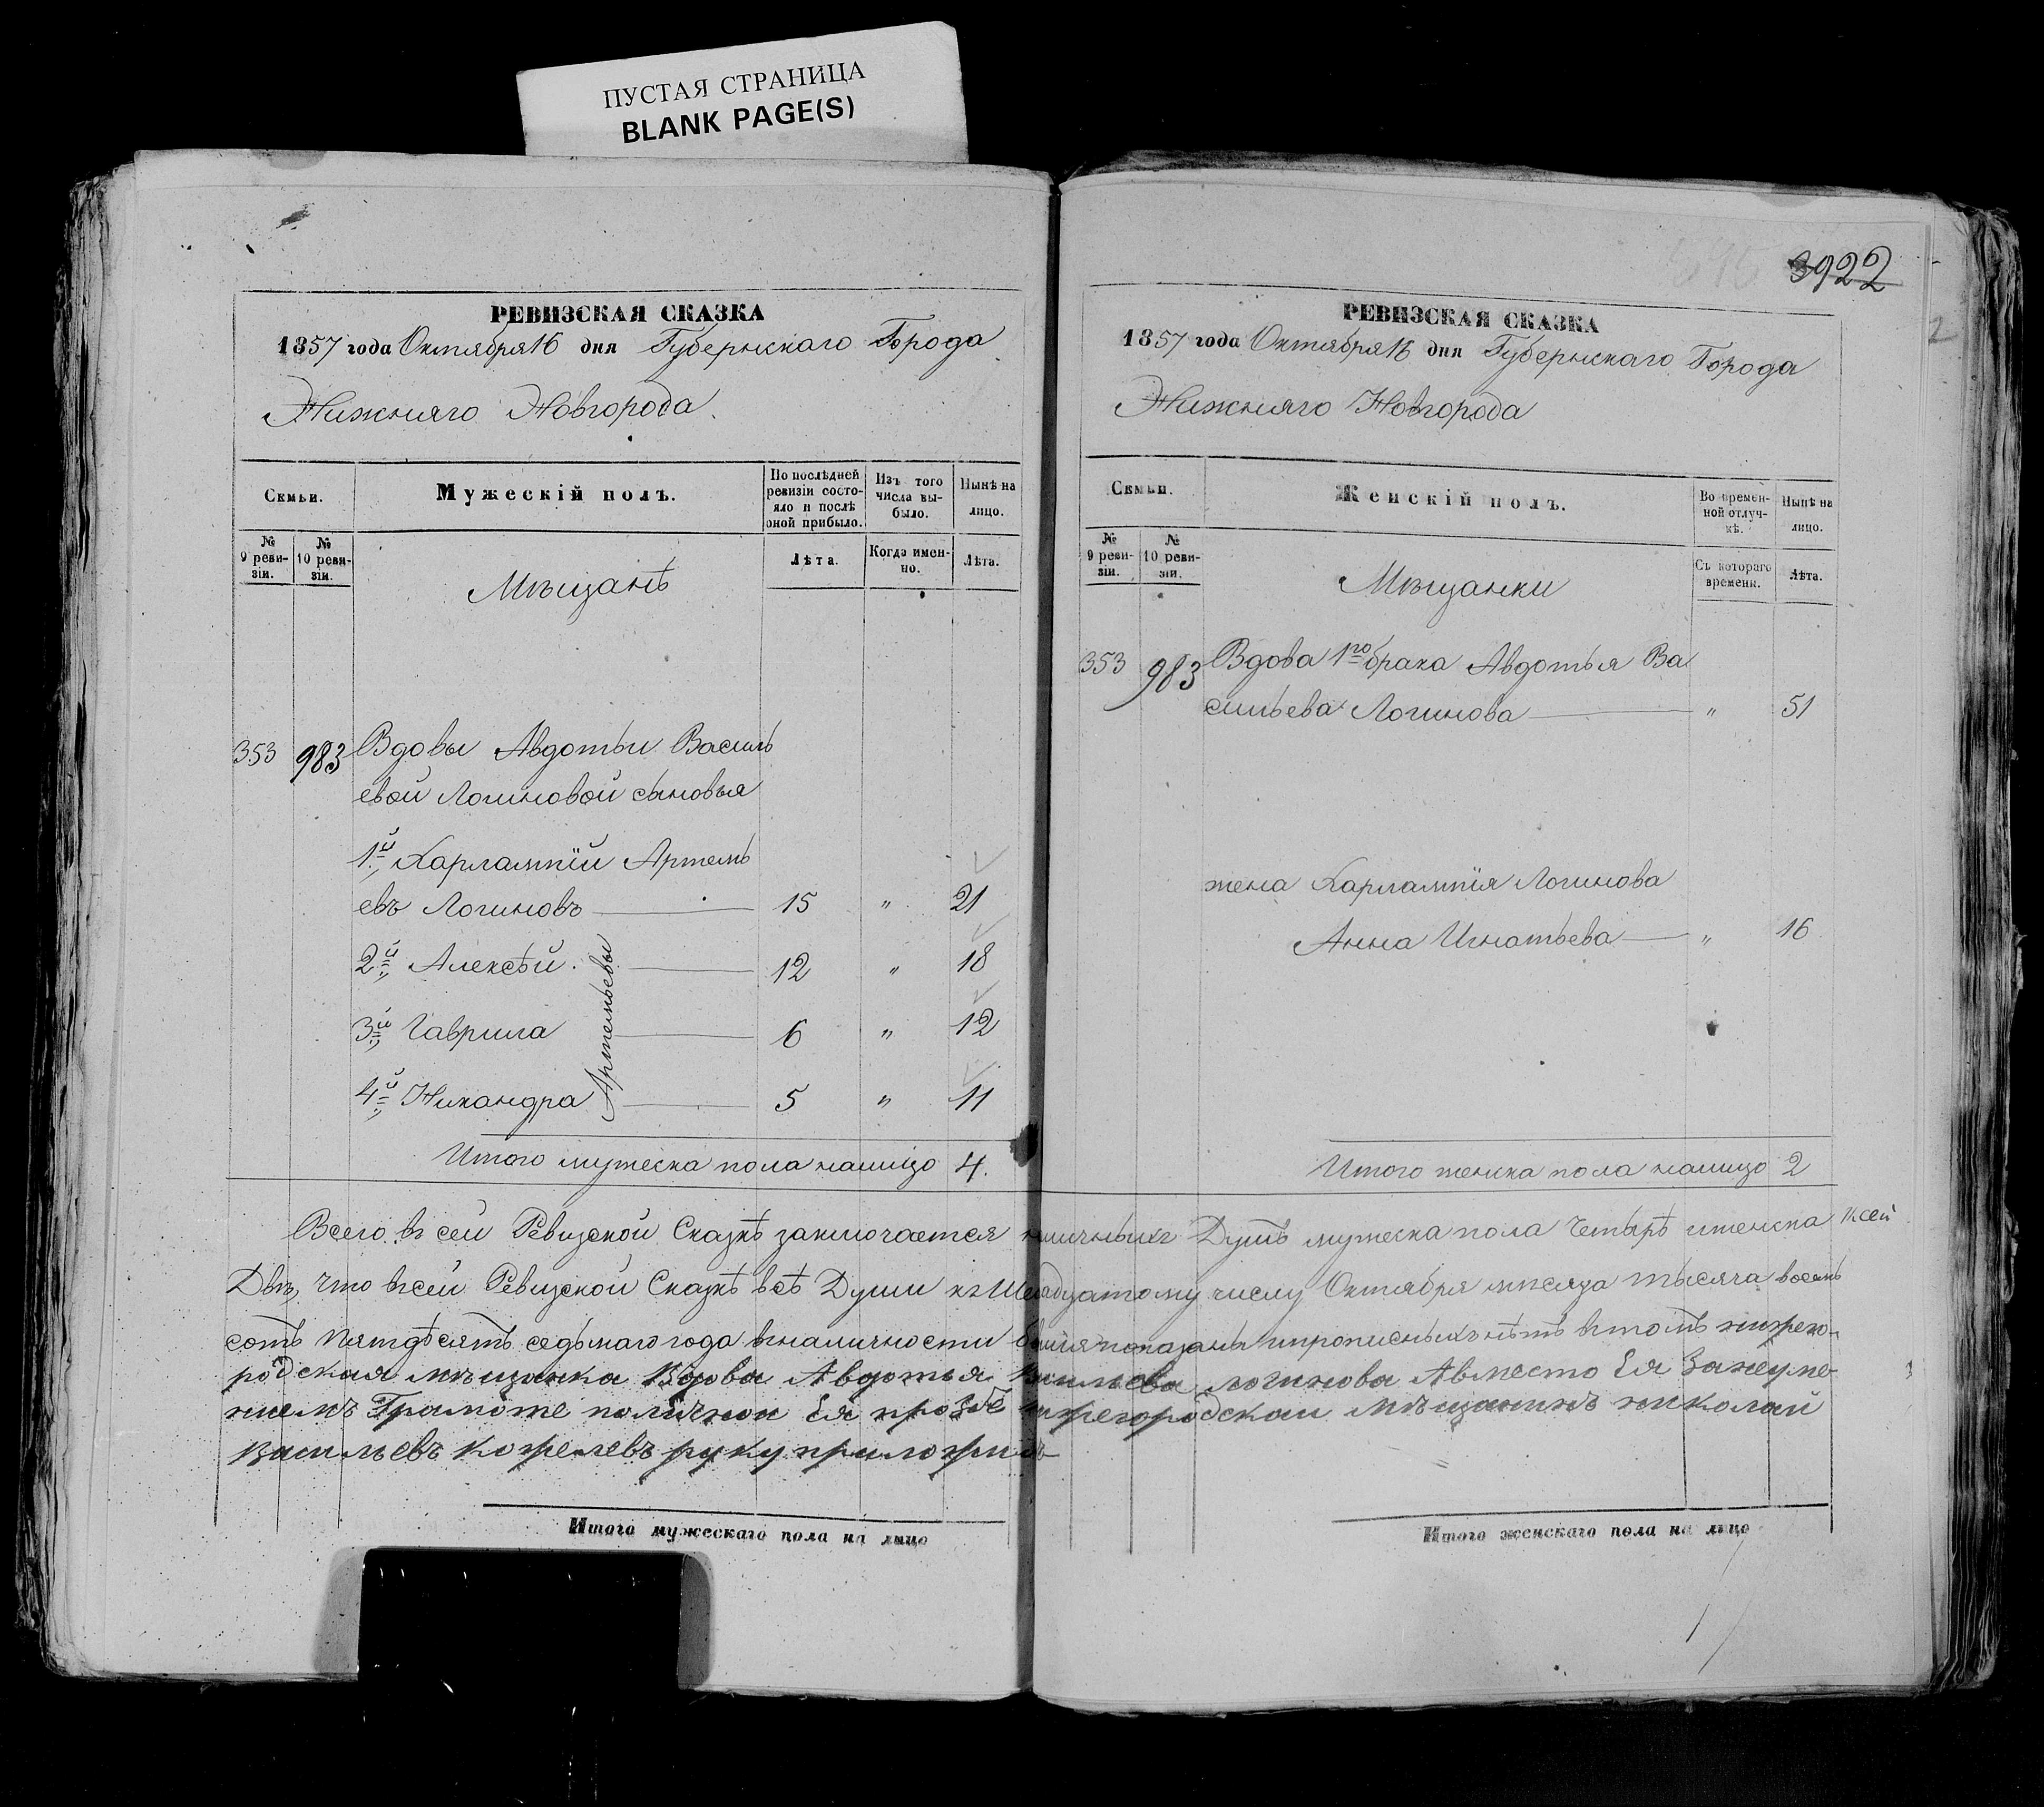 ПУСТАЯ СТРАНИЦА
BLANK PAGE(S)
РЕВИЗСКАЯ СКАЗКА
1857 года Октября 16 дня Губернскаго Города
Нижняго Новгорода
Семьи.
Мужескій полъ.
По послѣдней ревизіи состояло и послѣ оной прибыло.
Изъ того числа выбыло.
Нынѣ на лицо.
№ 9 ревизіи.
№ 10 ревизіи.
Мѣщанѣ
Лѣта.
Когда именно.
Лѣта.
353 983 Вдовы Авдотьи Василь
евой Логиновой сыновья
1й Харлампій Артемь
евъ Логиновъ 15 " 21
2й Алексѣй 12 " 18
3й Гаврила 6 " 12
4й Никандра 5 " 11
Артемьевы
Итого мужеска пола налицо 4.
3922
РЕВИЗСКАЯ СКАЗКА
1857 года Октября 16 дня Губернскаго Города
Нижняго Новгорода
Семьи.
Женскій полъ.
Во временной отлучкѣ.
Нынѣ на лицо.
№ 9 ревизіи.
№ 10 ревизіи.
Мѣщанки
Съ котораго времени.
Лѣта.
353 983 Вдова 1го брака Авдотья Ва
сильева Логинова " 51
жена Харлампія Логинова
Анна Игнатьева " 16
Итого женска пола налицо 2
Всего въ сей Ревизской Сказкѣ заключается наличныхъ Душъ мужеска пола Четырѣ иженска
Двѣ, Что всей Ревизской Сказкѣ всѣ Души къ Шеснадцатому числу Октября мѣсяца тысяча восемь
сотъ Пятдѣсятъ седьмаго года вналичности показаны ипрописныхъ нѣтъ втомъ нижего-
родская мѣщанка Вдова Авдотья Васильева логинова Авместо Ея Занеуме-
нием Грамоте поличнои Ея прозбе нижегородскаи мѣщанинъ николай
васильевъ руку приложилъ
Итого мужескаго пола на лицо
Итого женскаго пола на лицо